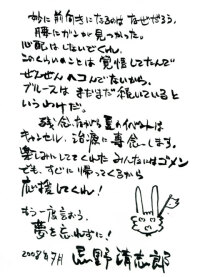 妙に前向きになるのはなぜだろう、
腰にガンが見つかった。
心配はしないでくれ、
このくらいのことは覚悟してたんで
ぜんぜんヘコんでないから。
ブルースはまだまだ続いていると
いうわけだ。
残念ながら夏のイベントは
キャンセル、治療に専念します。
楽しみにしててくれたみんなにはゴメン
でも、すぐに帰ってくるから
応援してくれ！
もう一度言おう。
夢を忘れずに！
2008年7月 忌野清志郎